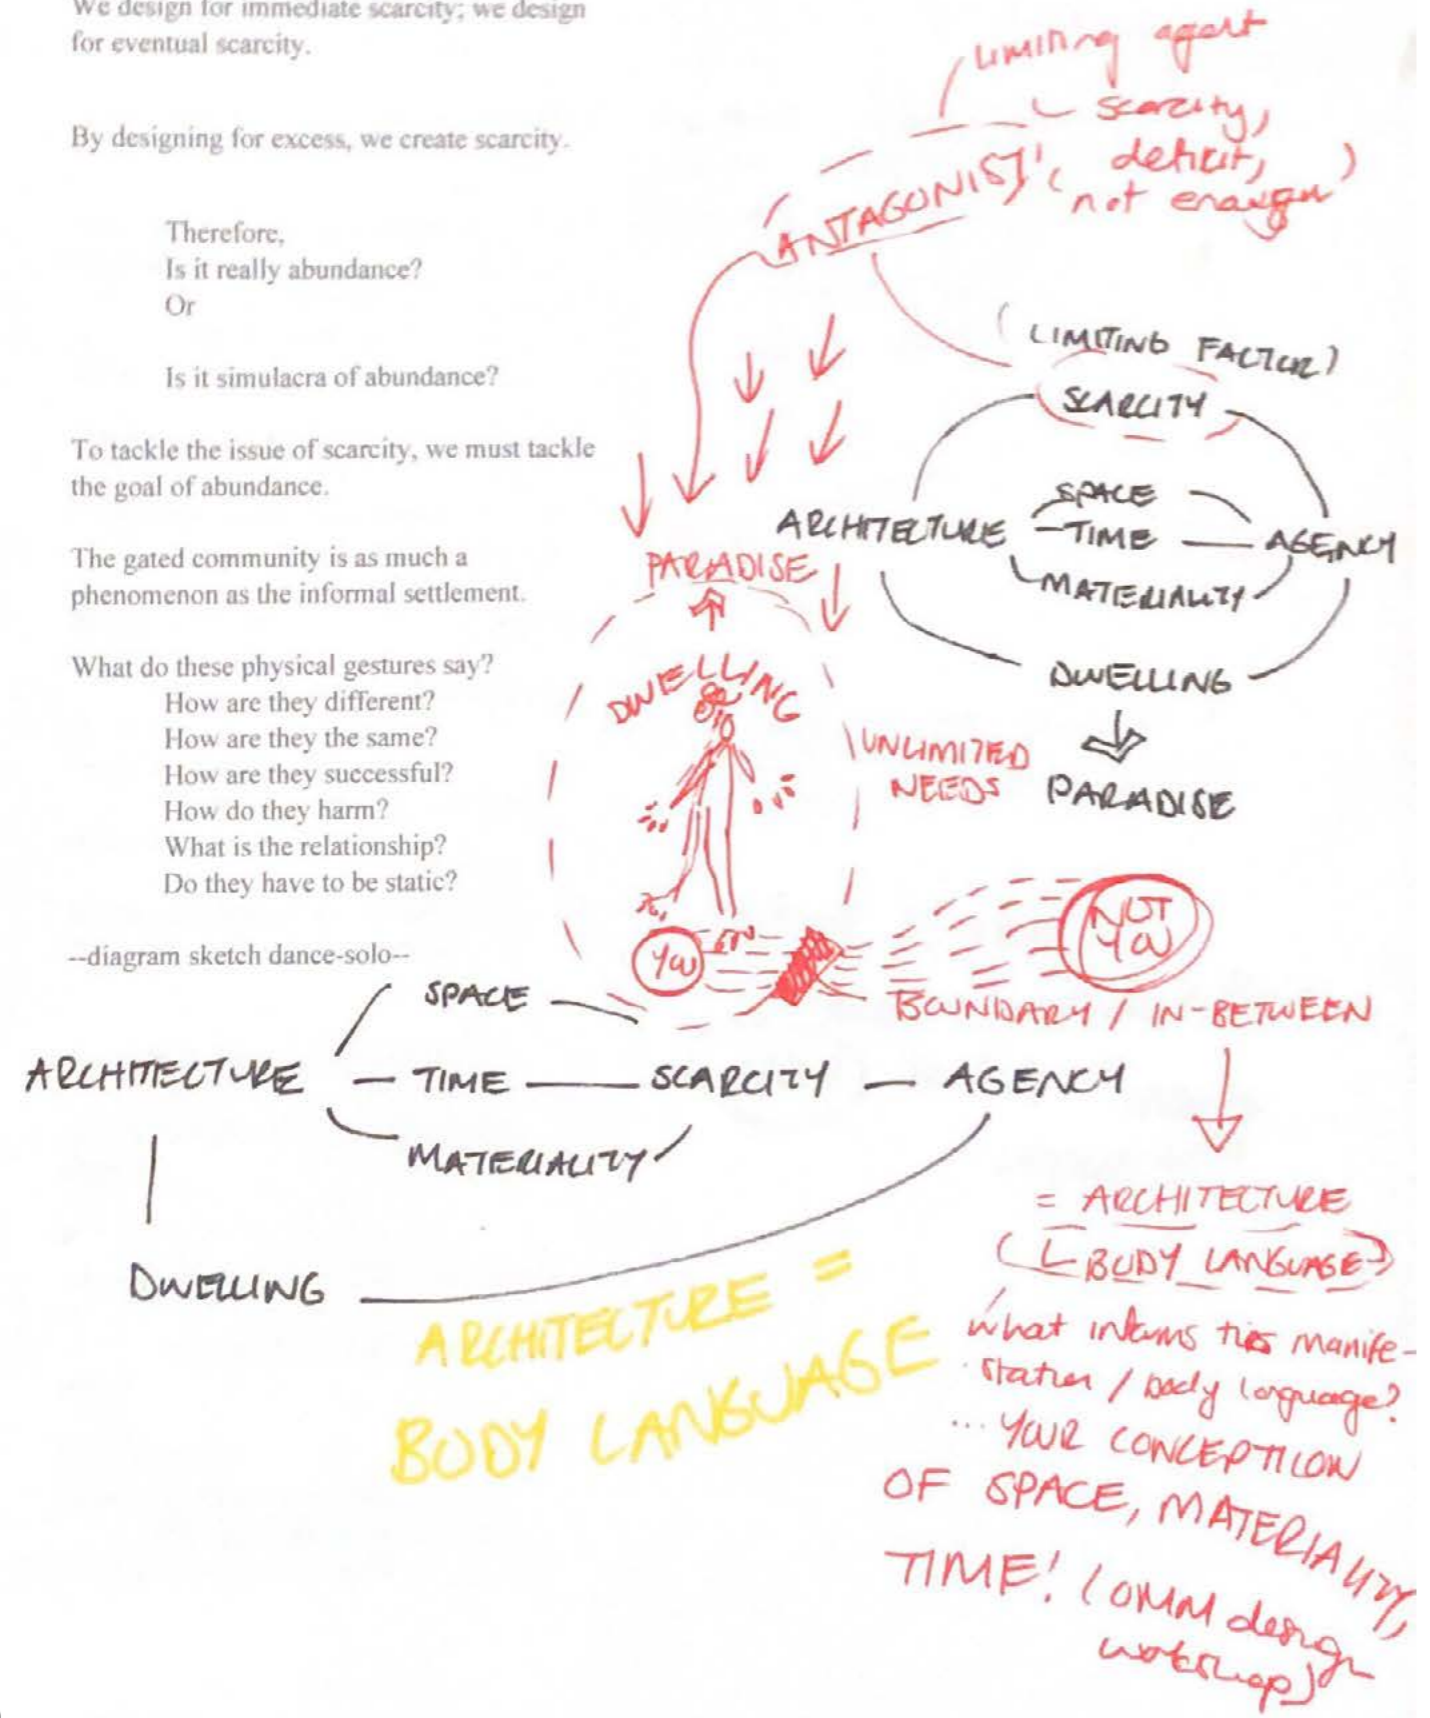 We design for immediate scarcity; we design
for eventual scarcity.
By designing for excess, we create scarcity.
Therefore,
Is it really abundance?
Or
Is it simulacra of abundance?
To tackle the issue of scarcity, we must tackle
the goal of abundance.
The gated community is as much a
phenomenon as the informal settlement.
What do these physical gestures say?
How are they different?
How are they the same?
How are they successful?
How do they harm?
What is the relationship?
Do they have to be static?
--diagram sketch dance-solo--
limiting agent
scarcity,
deficit,
not enough)
ANTAGONIST (
(LIMITING FACTOR)
SCARCITY
SPACE
ARCHITECTURE — TIME — AGENCY
MATERIALITY
DWELLING
PARADISE
PARADISE
DWELLING
UNLIMITED
NEEDS
YOU
NOT
YOU
BOUNDARY / IN-BETWEEN
SPACE
ARCHITECTURE — TIME — SCARCITY — AGENCY
MATERIALITY
DWELLING
= ARCHITECTURE
(BODY LANGUAGE)
What informs this manife-
station / body language?
... YOUR CONCEPTION
OF SPACE, MATERIALITY,
TIME! (OMM design
workshop)
ARCHITECTURE =
BODY LANGUAGE